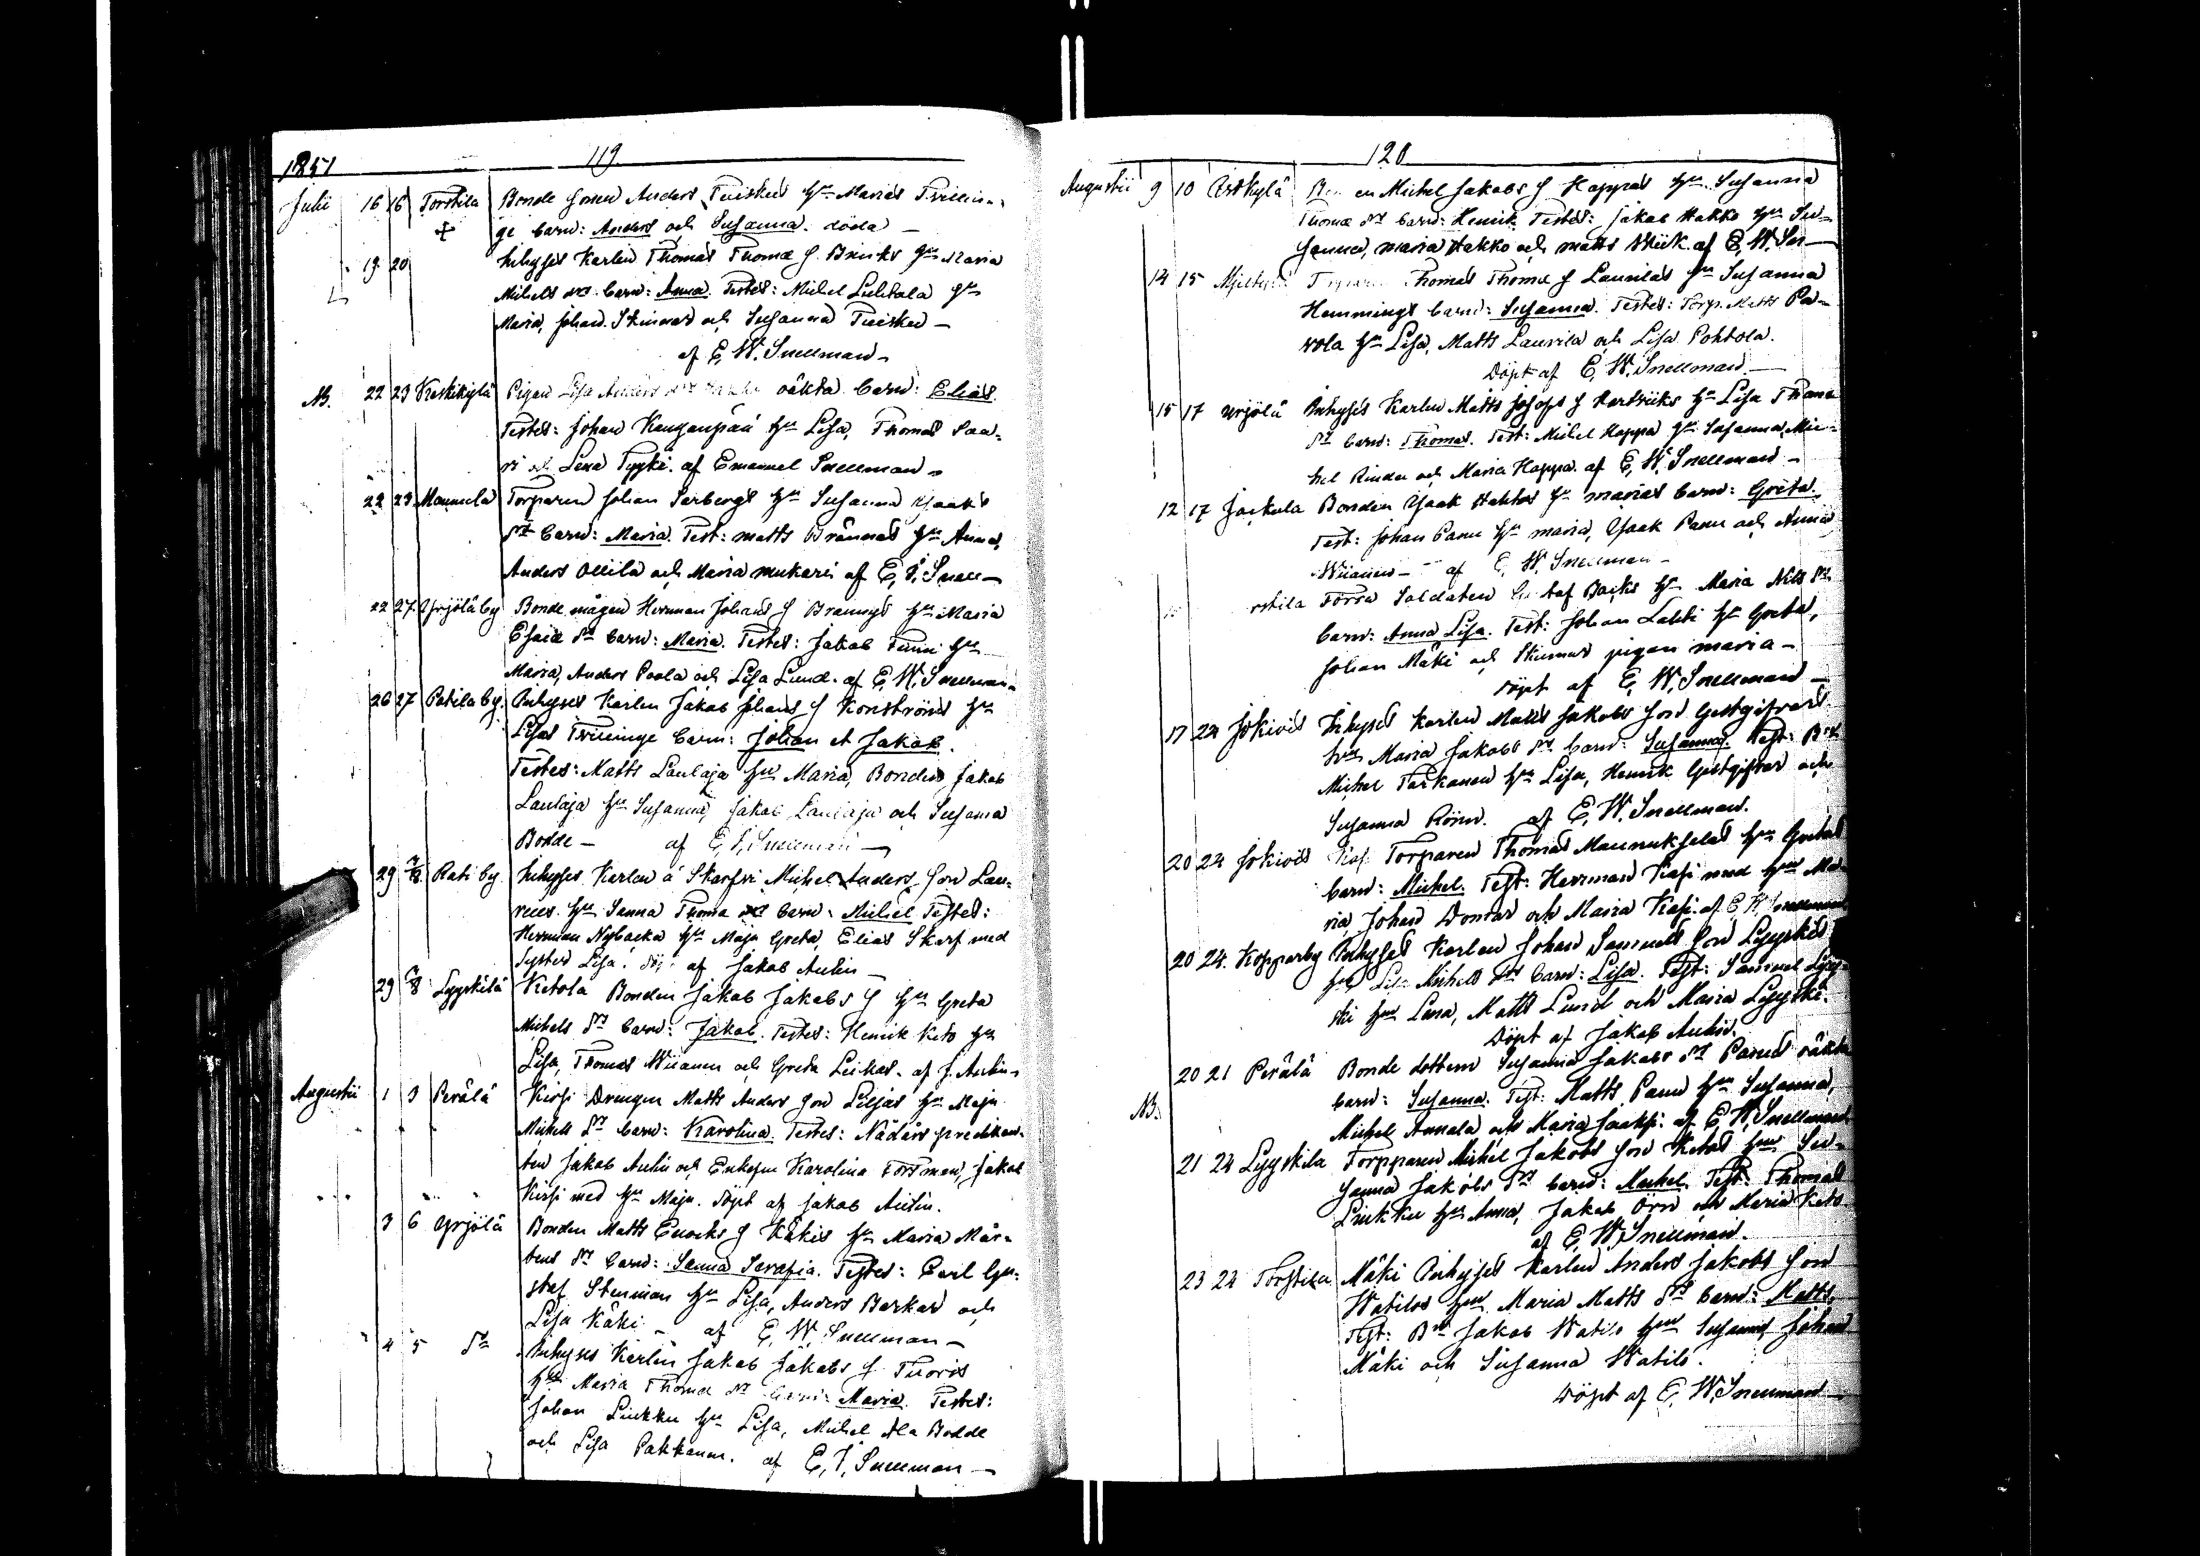 119
1851
Julii 16 16 Torstila Bonde sonen Anders Tuiskus hu Marias Trillin-
ge barn: Anders och Susanna. döda —
19 20 Inhyses Karlen Thomas Thomæ S. Brinks hu Maria
Michels dr barn: Anna. Testes: Michel Luhtala hu
Maria, Johan Stinnar och Susanna Tuisku —
af E. W. Snellman —
NB. 22 23 Keskikylä Pigan Lisa Anders dr oäkta barn: Elias.
Testes: Johan Kangaspää hu Lisa, Thomas Saa-
ri och Lena Typpi. af Emanuel Snellman —
22 23 Mannela Torparen Johan Serbergs hu Susanna Isaaks
dr barn: Maria. Test: Matts Brännas hu Anna,
Anders Ollila och Maria Mukari af E. V. Snell—
22 27 Yrjölä by Bonde mågen Herman Johans S Brannys hu Maria
Esaiæ dr barn: Maria. Testes: Jakob Funi hu
Maria, Anders Poola och Lisa Lund. af E. W. Snellman
26 27 Patila by. Inhyses Karlen Jakob Johans S Konströms hu
Lisas Trillinge barn: Johan et Jakob.
Testes: Matts Laulaja hu Maria, Bonden Jakob
Laulaja hu Susanna, Jakob Laulaja och Susanna
Bodde — af E. V. Snellman —
29 Rati by Inhyses Karlen å Skarfvi Michel Anders son Lau-
hu Sanna Thoma dr barn: Michel Testes:
Herman Nybacka hu Maja Greta, Elias Skarf med
Syster Lisa. af Jakob Aulin —
29 Lyyskilä Ketola Bonden Jakob Jakobs S hu Greta
Michels dr barn: Jakob. Testes: Henrik Keto hu
Lisa, Thomas Wiianen och Greta Leikas. af J. Aulin
Augustii 1 3 Perälä Kirsi Drengen Matts Anders son Liljas hu Maja
Michels dr barn: Karolina. Testes: Nådårs predikan-
ten Jakob Aulin och Enkefru Karolina Forsman, Jakob
Kirsi med hu Maja. Döpt af Jakob Aulin.
3 6 Yrjölä Bonden Matts Enocks S Käkis hu Maria Mår-
tens dr barn: Sanna Serafia. Testes: Carl Gu-
staf Stenman hu Lisa, Anders Barkar och
Lisa Käki — af E. W. Snellman —
4 5 do Inhyses Karlen Jakob Jakobs S Tuoris
hu Maria Thomæ dr barn: Maria. Testes:
Johan Linkku hu Lisa, Michel Ala Bodde
och Lisa Pakkanen. af E. V. Snellman —
120
Augustii 9 10 Michel Jakobs S Kappas hu Susanna
Thomæ dr barn: Henrik. Testes: Jakob Hakko hu Su-
sanna, Maria Hakko och Matts Wiik af E. W. Sn—
14 15 Thomas Thomæ S Laurilas hu Susanna
Hemmings barn: Susanna. Testes: Torp. Matts Pa-
vola hu Lisa, Matts Laurila och Lisa Pohtola.
Döpt af E. W. Snellman —
15 17 Yrjölä Inhyses Karlen Matts Josefs S Hertsiks hu Lisa Thomæ
dr barn: Thomas. Test: Michel Kappa hu Susanna, Mic-
hel Rinda och Maria Kappa. af E. W. Snellman —
12 17 Jackula Bonden Isaak Hahtos hu Marias barn: Greta.
Test: Johan Panu hu Maria, Isaak Panu och Anna
Wiianen — af E. W. Snellman —
Förra Soldaten Backs hu Maria Nils dr
barn: Anna Lisa. Test: Johan Lahti hu Greta,
Johan Mäki och Stinnas pigan Maria —
Döpt af E. W. Snellman —
17 24 Jokivis Inhyses Karlen Matts Jakobs son Gestgifvars
hus Maria Jakobs dr barn: Susanna. Test: Bn
Michel Tarkanen hu Lisa, Henrik Gestgifvar och
Susanna Rönn. af E. W. Snellman.
20 24 Jokivis Torparen Thomas Mannukselas hu Gretas
barn: Michel. Test: Herrman Kasi med hu Ma-
ria, Johan Domar och Maria Kasi. af E. W. Snellman
20 24. Kopparby Inhyses Karlen Johan Samuels son Lyyskis
hu Lisa Michels dr barn: Lisa. Test: Samuel Lyys-
ki hu Lena, Matts Lund och Maria Lyyski.
Döpt af Jakob Aulin.
20 21 Perälä Bonde dottern Susanna Jakobs dr Panus oäkta
NB. barn: Susanna. Test: Matts Panu hu Susanna,
Michel Annala och Maria Jackki. af E. W. Snellman
21 24 Lyyskila Torpparen Michel Jakobs son Ketos hu Su-
sanna Jakobs dr barn: Michel. Test: Thomas
Linkku hu Anna, Jakob Örn och Maria Keto
af E. W. Snellman.
23 24 Torstila Mäki Inhyses Karlen Anders Jakobs son
Watilos hu Maria Matts dr barn: Matts.
Test: Bn Jakob Watilo hu Susanna, Johan
Mäki och Susanna Watilo.
Döpt af E. W. Snellman —